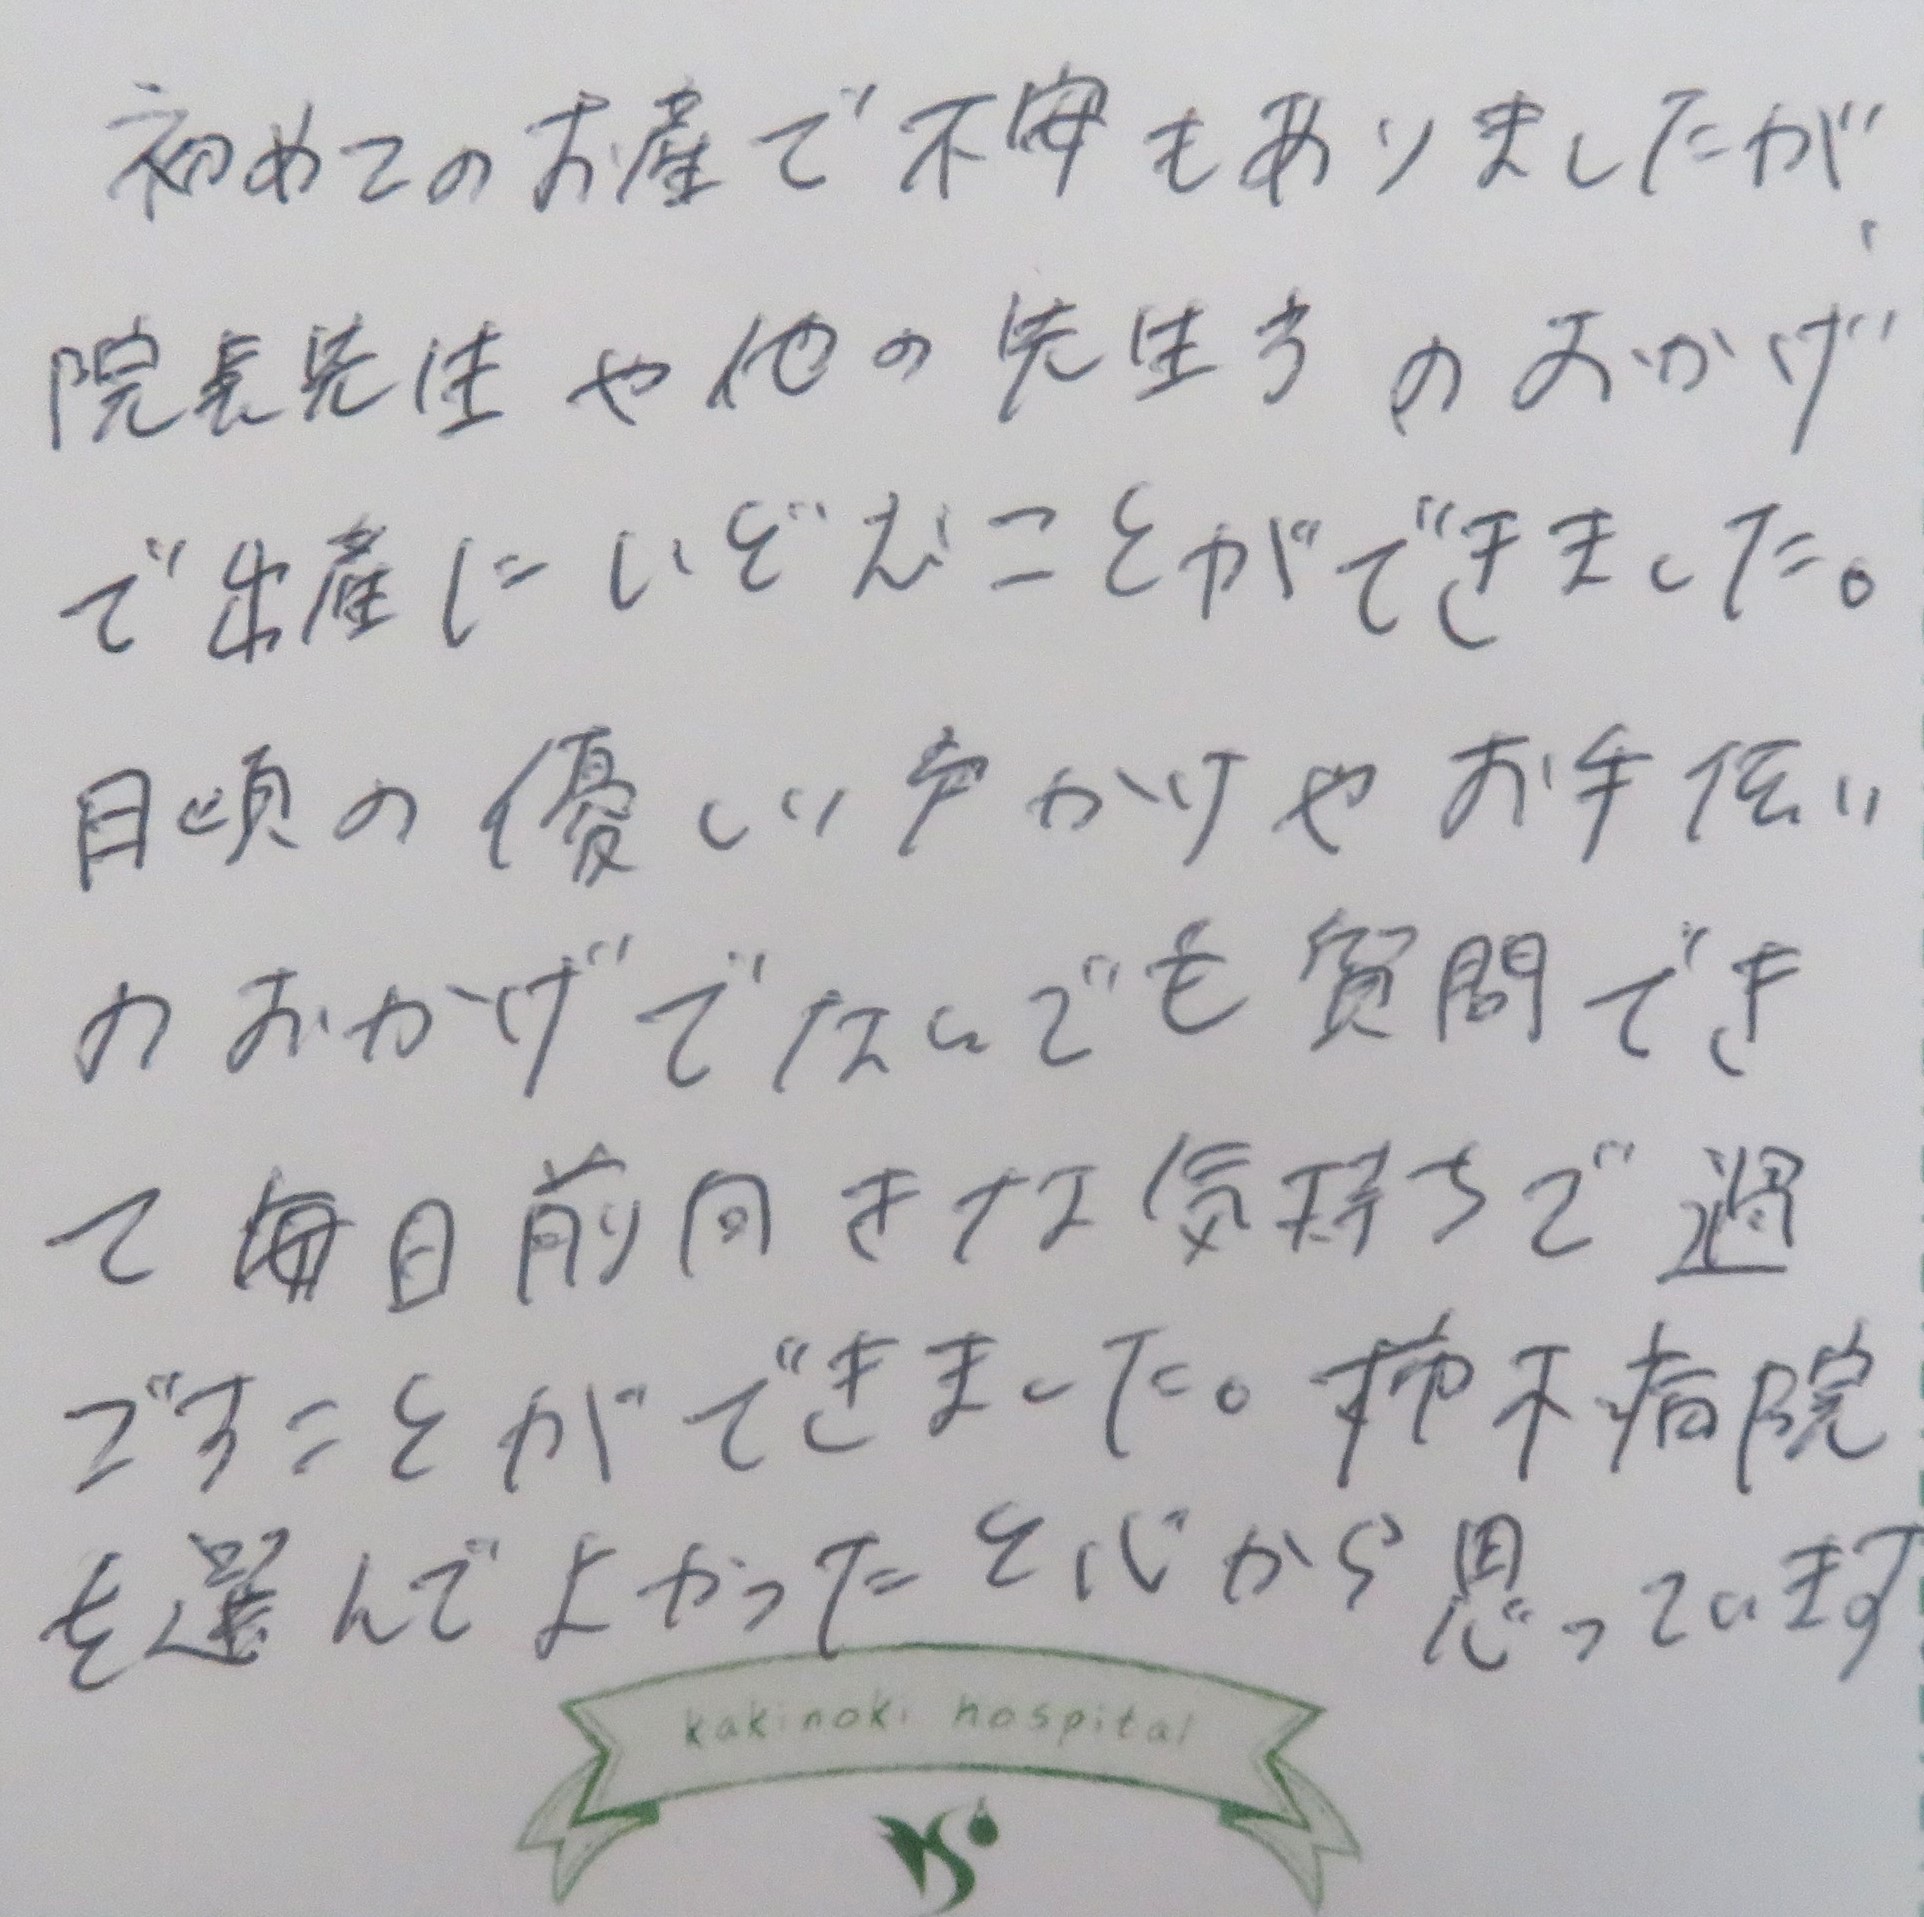 初めてのお産で不安もありましたが、
院長先生や他の先生方のおかげ
で出産にいどむことができました。
日頃の優しい声かけやお手伝い
のおかげでなんでも質問でき
て毎日前向きな気持ちで過
ごすことができました。柿木病院
を選んでよかったと心から思っています
kakinoki hospital